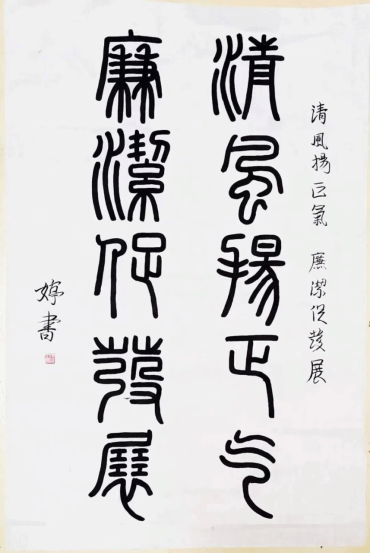 清風揚正氣 廉潔促發展
清風揚正气
廉潔促發展
婷書